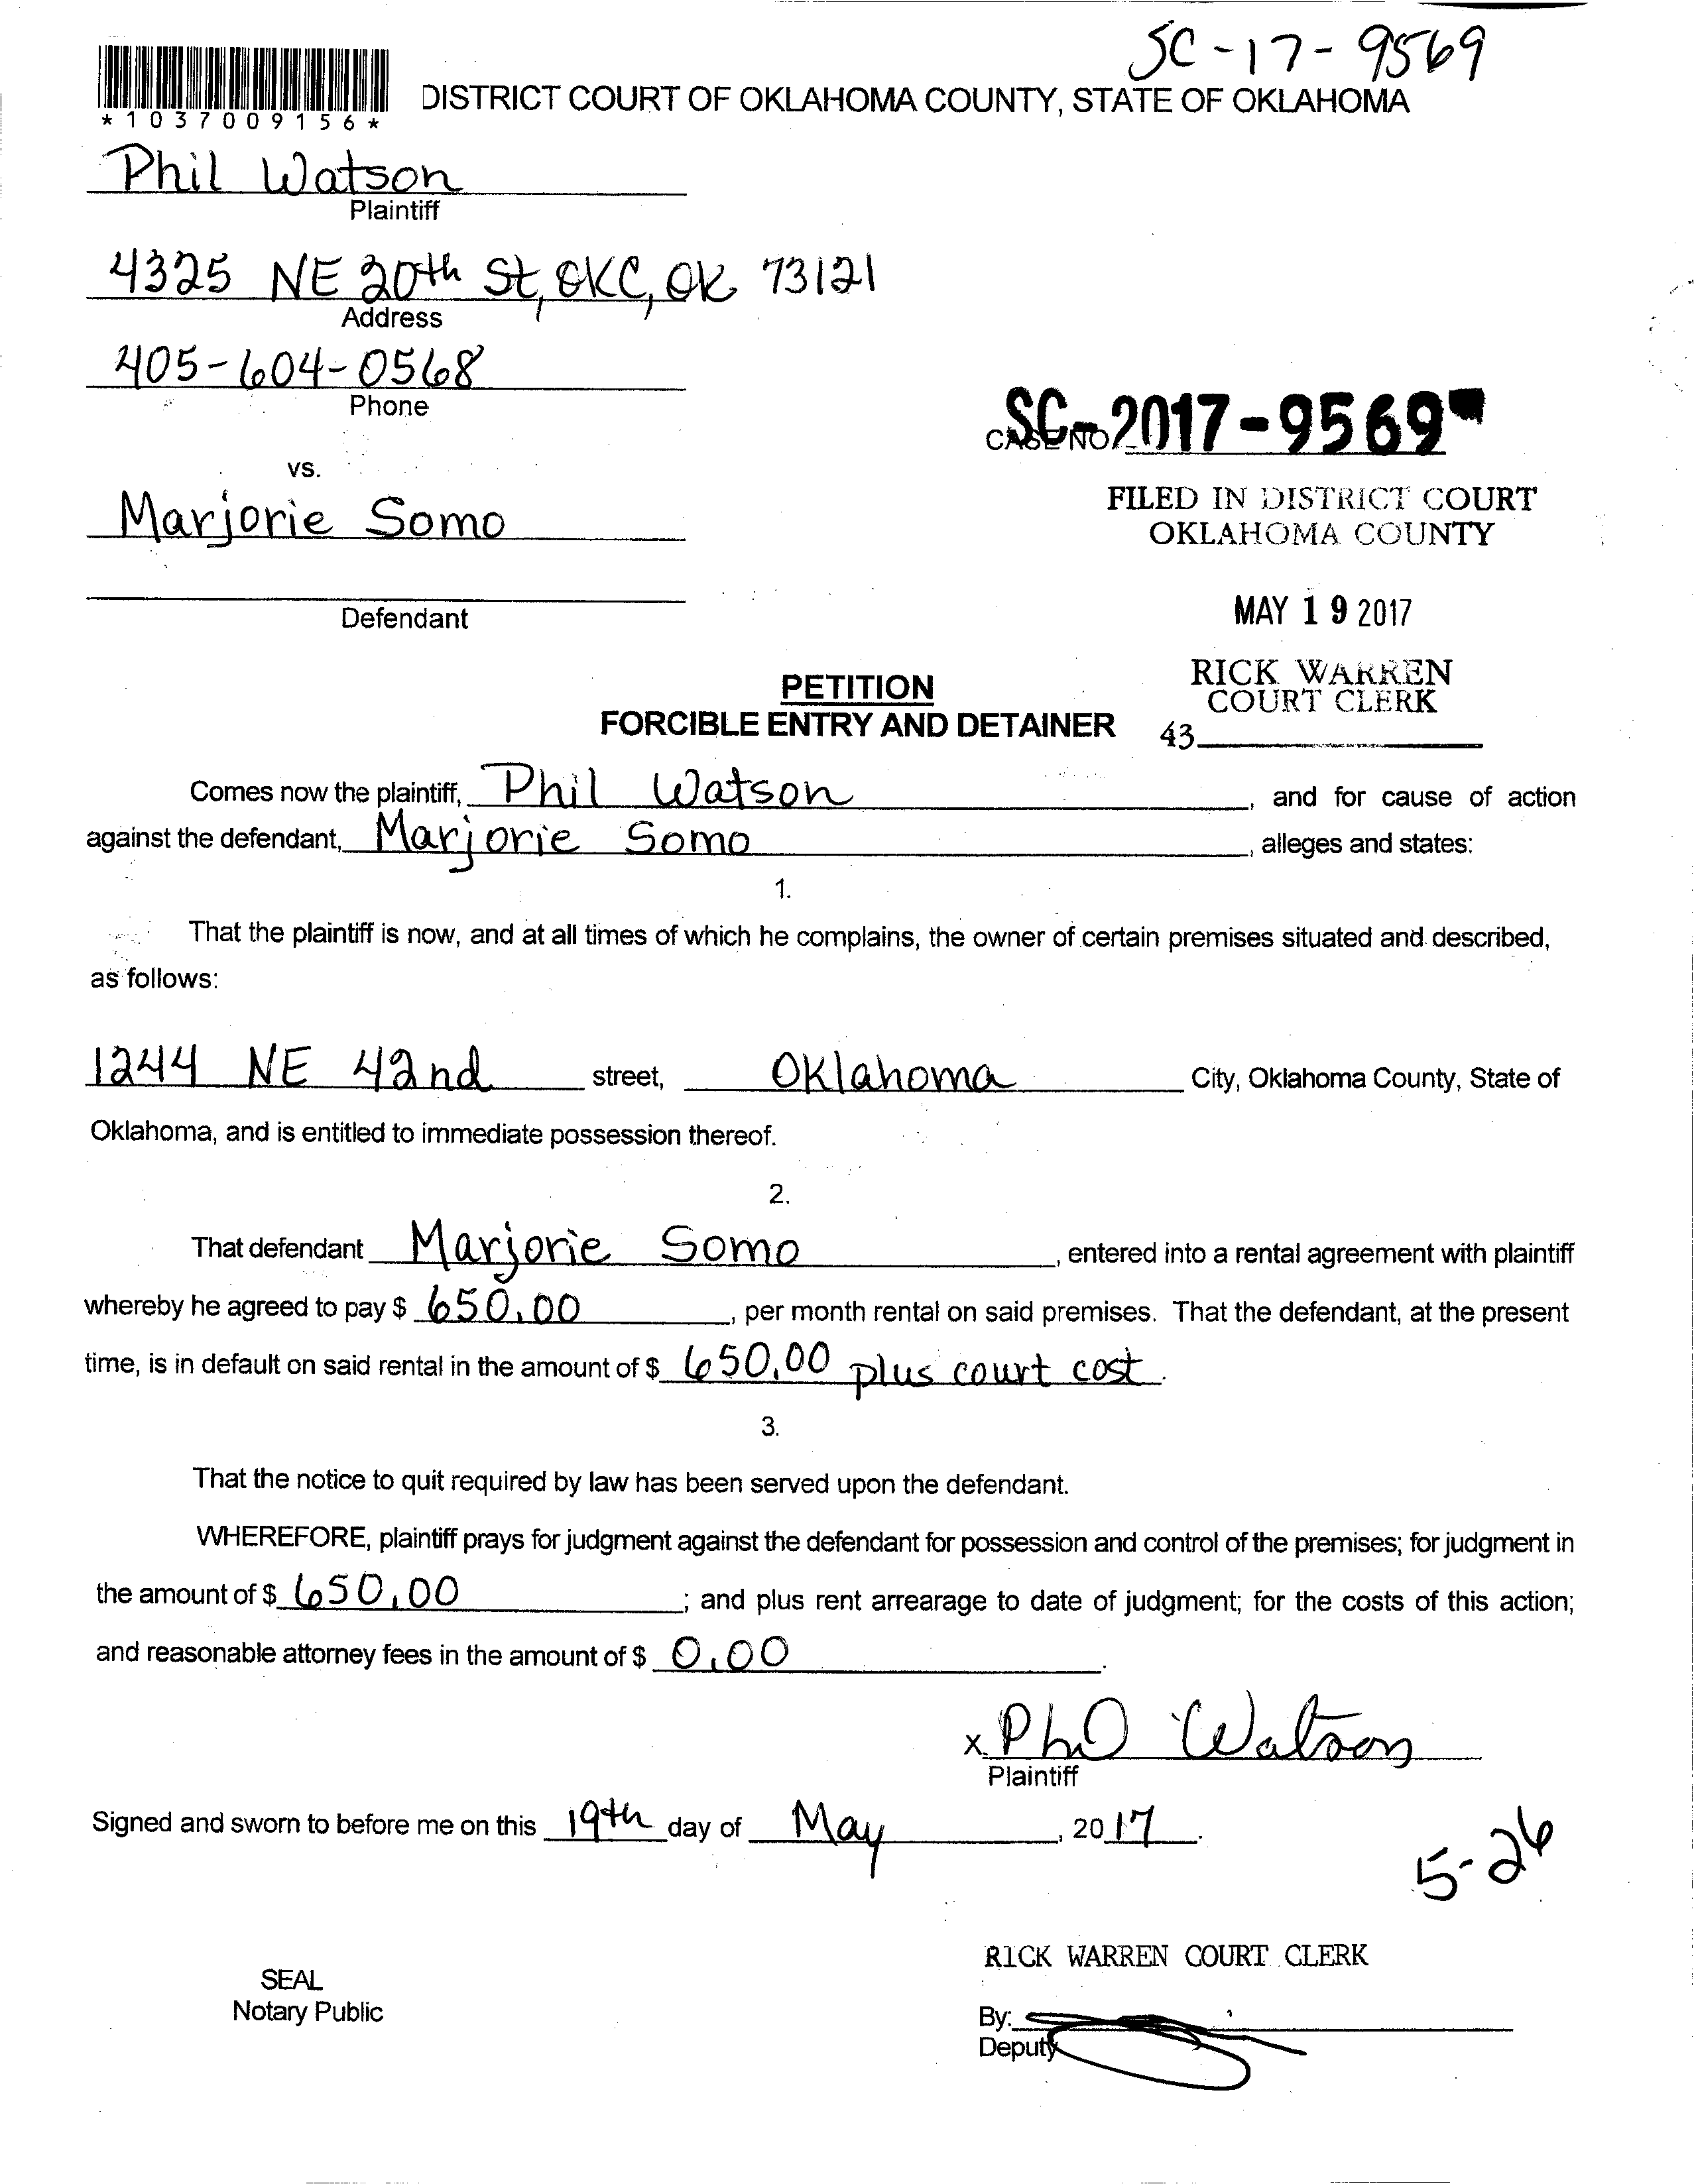 SC-17-9569
*1037009156*
DISTRICT COURT OF OKLAHOMA COUNTY, STATE OF OKLAHOMA
Phil Watson
Plaintiff
4325 NE 20th St, OKC, OK 73121
Address
405-604-0568
Phone
CASE NO. SC-2017-9569
vs.
Marjorie Somo
FILED IN DISTRICT COURT
OKLAHOMA COUNTY
Defendant
MAY 19 2017
RICK WARREN
COURT CLERK
43
PETITION
FORCIBLE ENTRY AND DETAINER
Comes now the plaintiff, Phil Watson, and for cause of action
against the defendant, Marjorie Somo, alleges and states:
1.
That the plaintiff is now, and at all times of which he complains, the owner of certain premises situated and described,
as follows:
1244 NE 42nd street, Oklahoma City, Oklahoma County, State of
Oklahoma, and is entitled to immediate possession thereof.
2.
That defendant Marjorie Somo, entered into a rental agreement with plaintiff
whereby he agreed to pay $ 650.00, per month rental on said premises. That the defendant, at the present
time, is in default on said rental in the amount of $ 650.00 plus court cost.
3.
That the notice to quit required by law has been served upon the defendant.
WHEREFORE, plaintiff prays for judgment against the defendant for possession and control of the premises; for judgment in
the amount of $ 650.00; and plus rent arrearage to date of judgment; for the costs of this action;
and reasonable attorney fees in the amount of $ 0.00.
x. Phil Watson
Plaintiff
Signed and sworn to before me on this 19th day of May, 2017.
5-26
RICK WARREN COURT CLERK
SEAL
Notary Public
By:
Deputy